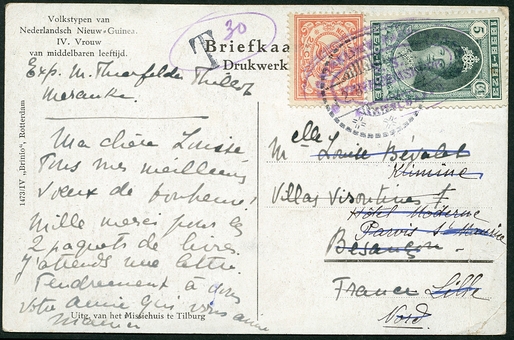 Volkstypen van
Nederlandsch Nieuw-Guinea.
IV. Vrouw
van middelbaren leeftijd.
T
30
Briefkaa
Drukwerk
5 CT
1898-1923
Exp. M.
Merauke.
Ma chère Louise
Tous mes meilleurs
vœux de bonheur!
Mille merci pour les
2 paquets de livres.
J'attends une lettre.
Tendrement à vous
votre amie qui vous aime
1473/IV „Brinio", Rotterdam
Uitg. van het Missiehuis te Tilburg
Melle Louise Bévalet
Villas Visontines
Hôtel Moderne
Parvis St Maurice
Besançon
France Lille
Nord